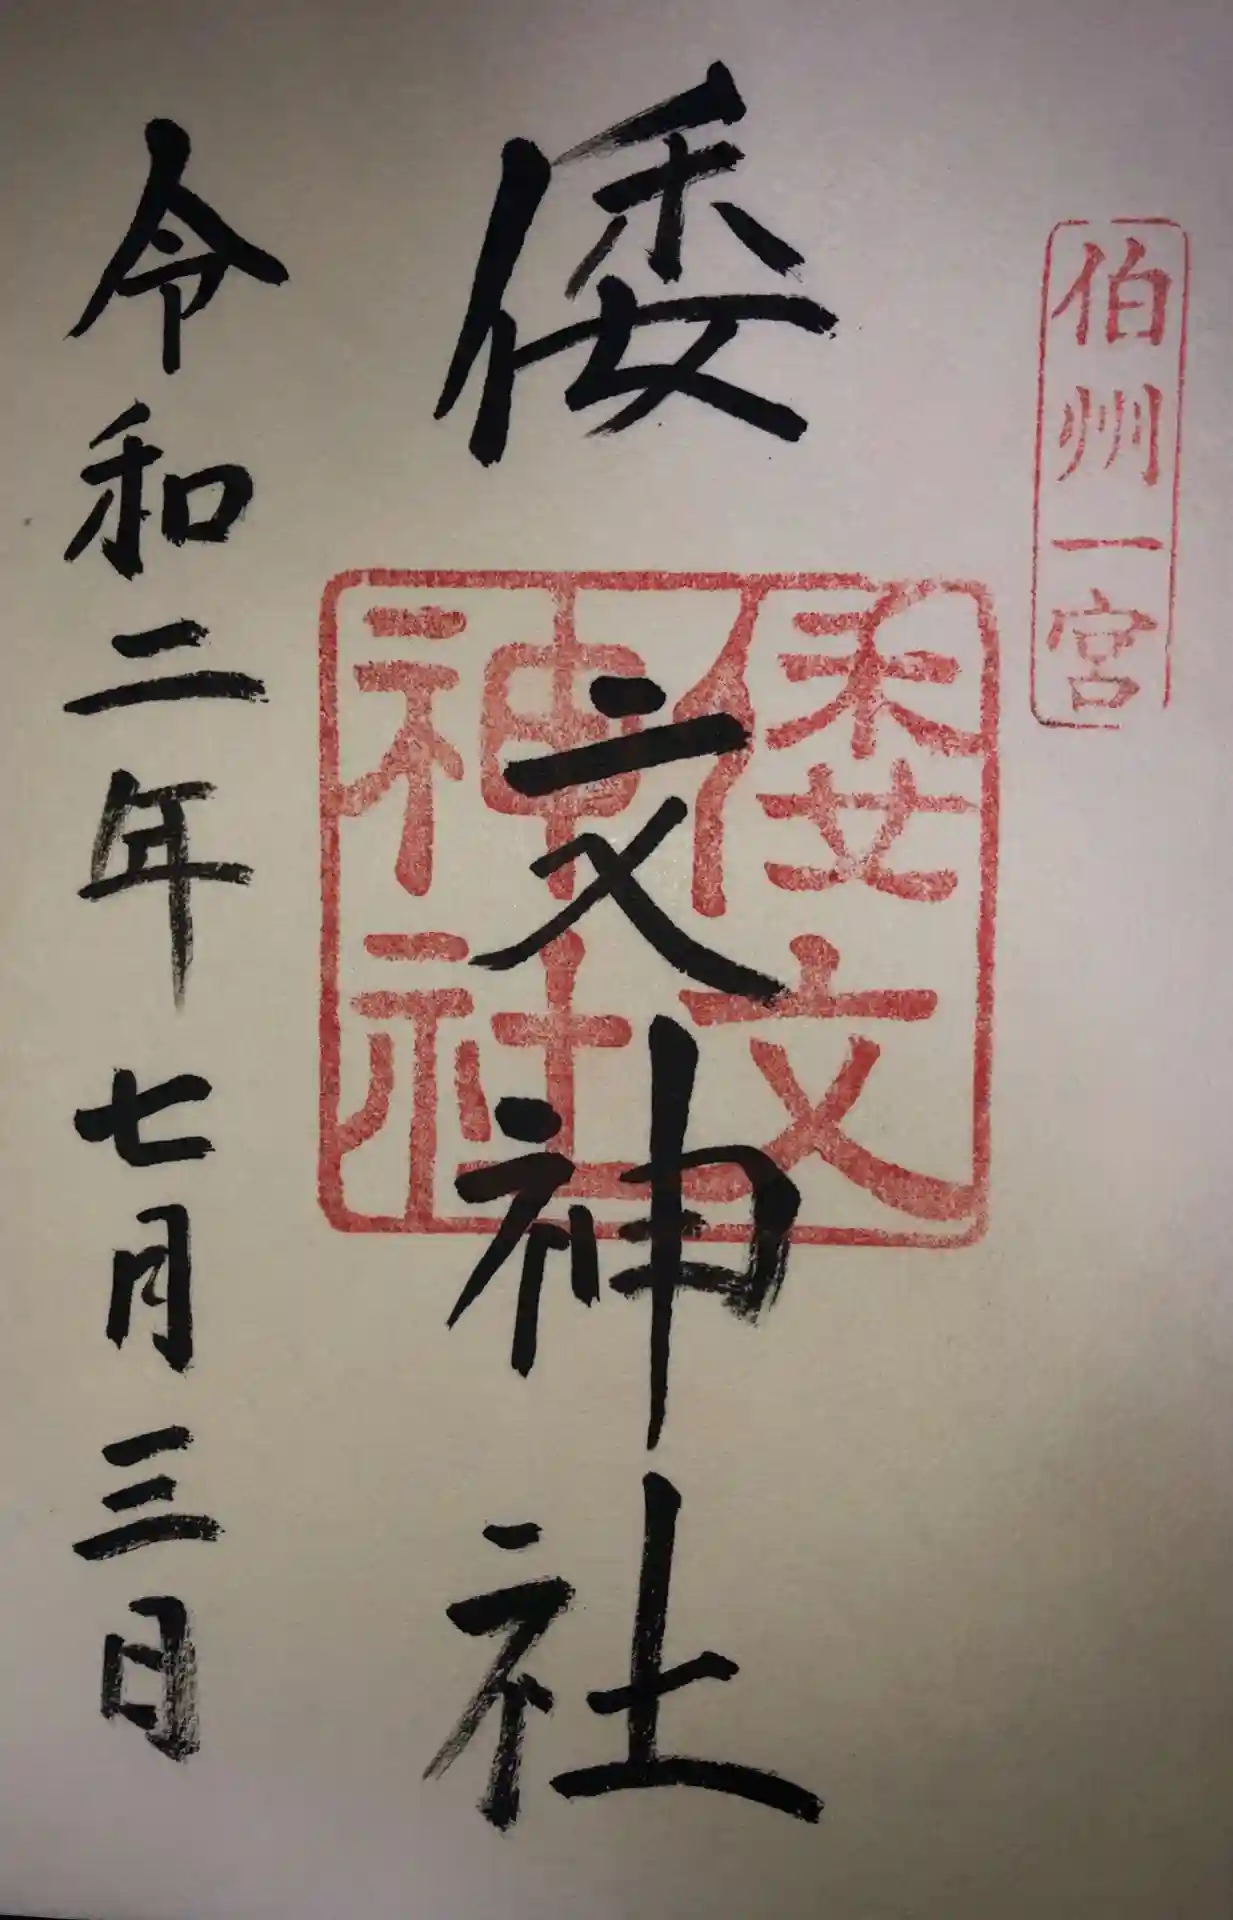 伯州一宮
倭文神社
倭文
神社
令和二年七月三日